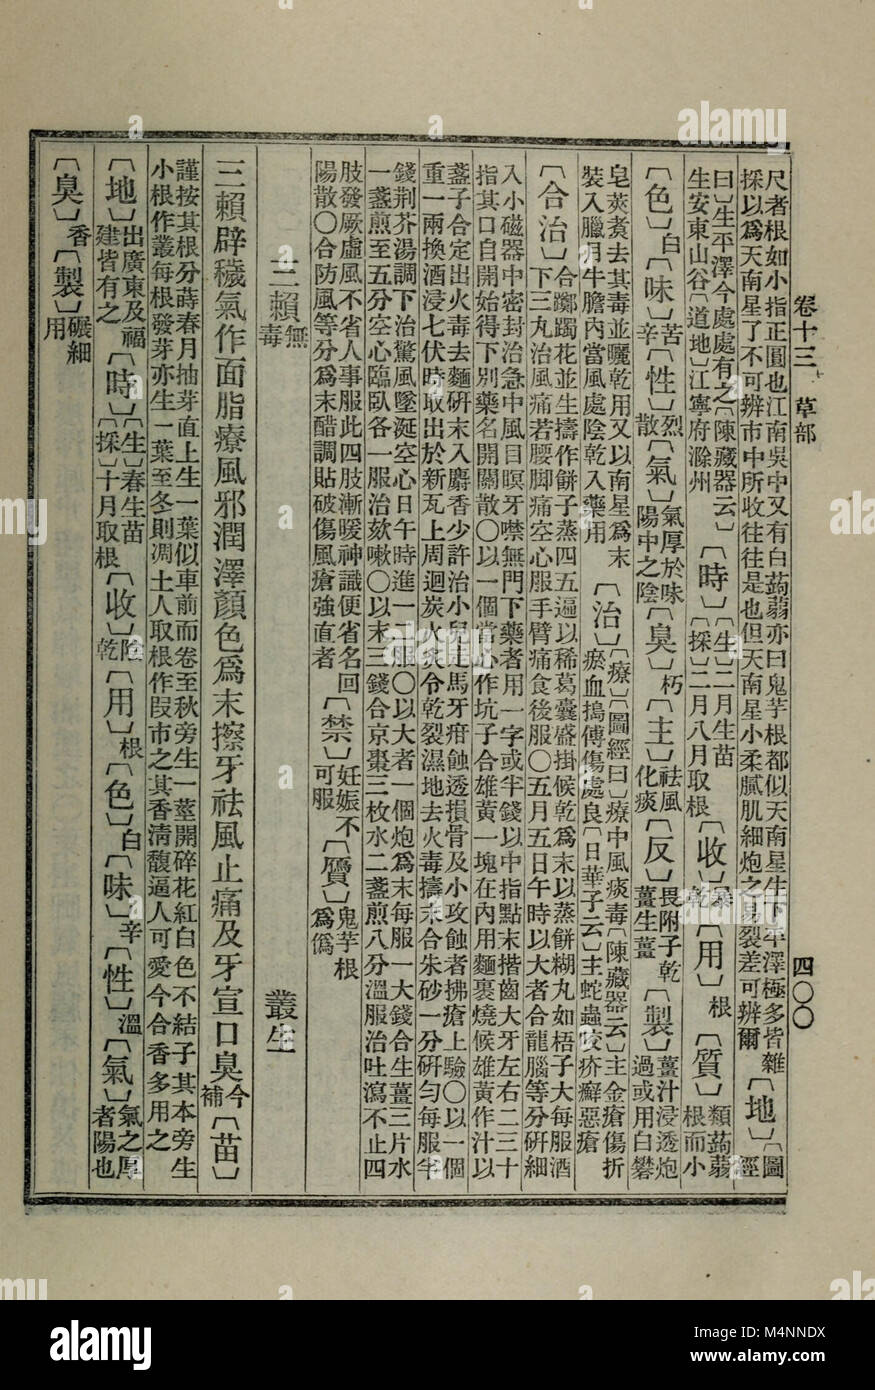 卷十三 草部 四〇〇
尺者根如小指正圓也江南吳中又有白蒟蒻亦曰鬼芋根都似天南星生下平澤極多皆雜
採以為天南星了不可辨市中所收往往是也但天南星小柔膩肌細炮之易裂差可辨爾〔地〕〔圖經
曰〕生平澤今處處有之〔陳藏器云〕
生安東山谷〔道地〕江寧府滁州〔時〕〔生〕二月生苗〔採〕二月八月取根〔收〕暴乾〔用〕根〔質〕類蒟蒻根而小
〔色〕白〔味〕苦辛〔性〕烈散〔氣〕氣厚於味陽中之陰〔臭〕朽〔主〕祛風化痰〔反〕畏附子乾薑生薑〔製〕薑汁浸透炮過或用白礬
皂莢煮去其毒並曬乾用又以南星為末
裝入臘月牛膽內當風處陰乾入藥用〔治〕〔療〕〔圖經曰〕療中風痰毒〔陳藏器云〕主金瘡傷折
瘀血搗傅傷處良〔日華子云〕主蛇蟲咬疥癬惡瘡
〔合治〕合躑躅花並生擣作餅子蒸四五遍以稀葛囊盛掛候乾為末以蒸餅糊丸如梧子大每服酒
下三丸治風痛若腰脚痛空心服手臂痛食後服〇五月五日午時以大者合龍腦等分研細
入小磁器中密封治急中風目暝牙噤無門下藥者用一字或半錢以中指點末揩齒大牙左右二三十
指其口自開始得下別藥名開關散〇以一個當心作坑子合雄黃一塊在內用麵裹燒候雄黃作汁以
盞子合定出火毒去麵研末入麝香少許治小兒走馬牙疳蝕透損骨及小攻蝕者拂瘡上驗〇以一個
重一兩換酒浸七伏時取出於新瓦上周迴炭火炙令乾裂濕地去火毒擣末合朱砂一分研勻每服半
錢荆芥湯調下治驚風墜涎空心日午時進一二服〇以大者一個炮為末每服一大錢合生薑三片水
一盞煎至五分空心臨臥各一服治欬嗽〇以末三錢合京棗三枚水二盞煎八分溫服治吐瀉不止四
肢發厥虛風不省人事服此四肢漸暖神識便省名回
陽散〇合防風等分為末醋調貼破傷風瘡強直者〔禁〕妊娠不可服〔贋〕鬼芋根為偽
三賴無毒 叢生
三賴辟穢氣作面脂療風邪潤澤顏色為末擦牙祛風止痛及牙宣口臭今補〔苗〕
謹按其根分蒔春月抽芽直上生一葉似車前而卷至秋旁生一莖開碎花紅白色不結子其本旁生
小根作叢每根發芽亦生一葉至冬則凋土人取根作段市之其香淸馥逼人可愛今合香多用之
〔地〕出廣東及福建皆有之〔時〕〔生〕春生苗〔採〕十月取根〔收〕陰乾〔用〕根〔色〕白〔味〕辛〔性〕溫〔氣〕氣之厚者陽也
〔臭〕香〔製〕碾細用
alamy
Image ID: M4NNDX
www.alamy.com